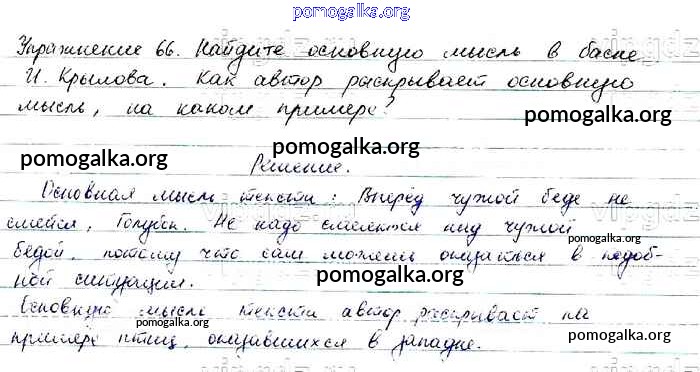 pomogalka.org
Упражнение 66. Найдите основную мысль в басне
И. Крылова. Как автор раскрывает основную
мысль, на каком примере?
pomogalka.org
pomogalka.org
Решение.
Основная мысль текста: Вперёд чужой беде не
смейся, Голубок. Не надо смеяться над чужой
pomogalka.org
бедой, потому что сам можешь оказаться в подоб-
ной ситуации.
pomogalka.org
Основную мысль текста автор раскрывает на
pomogalka.org
pomogalka.org
примере птиц, оказавшихся в западне.